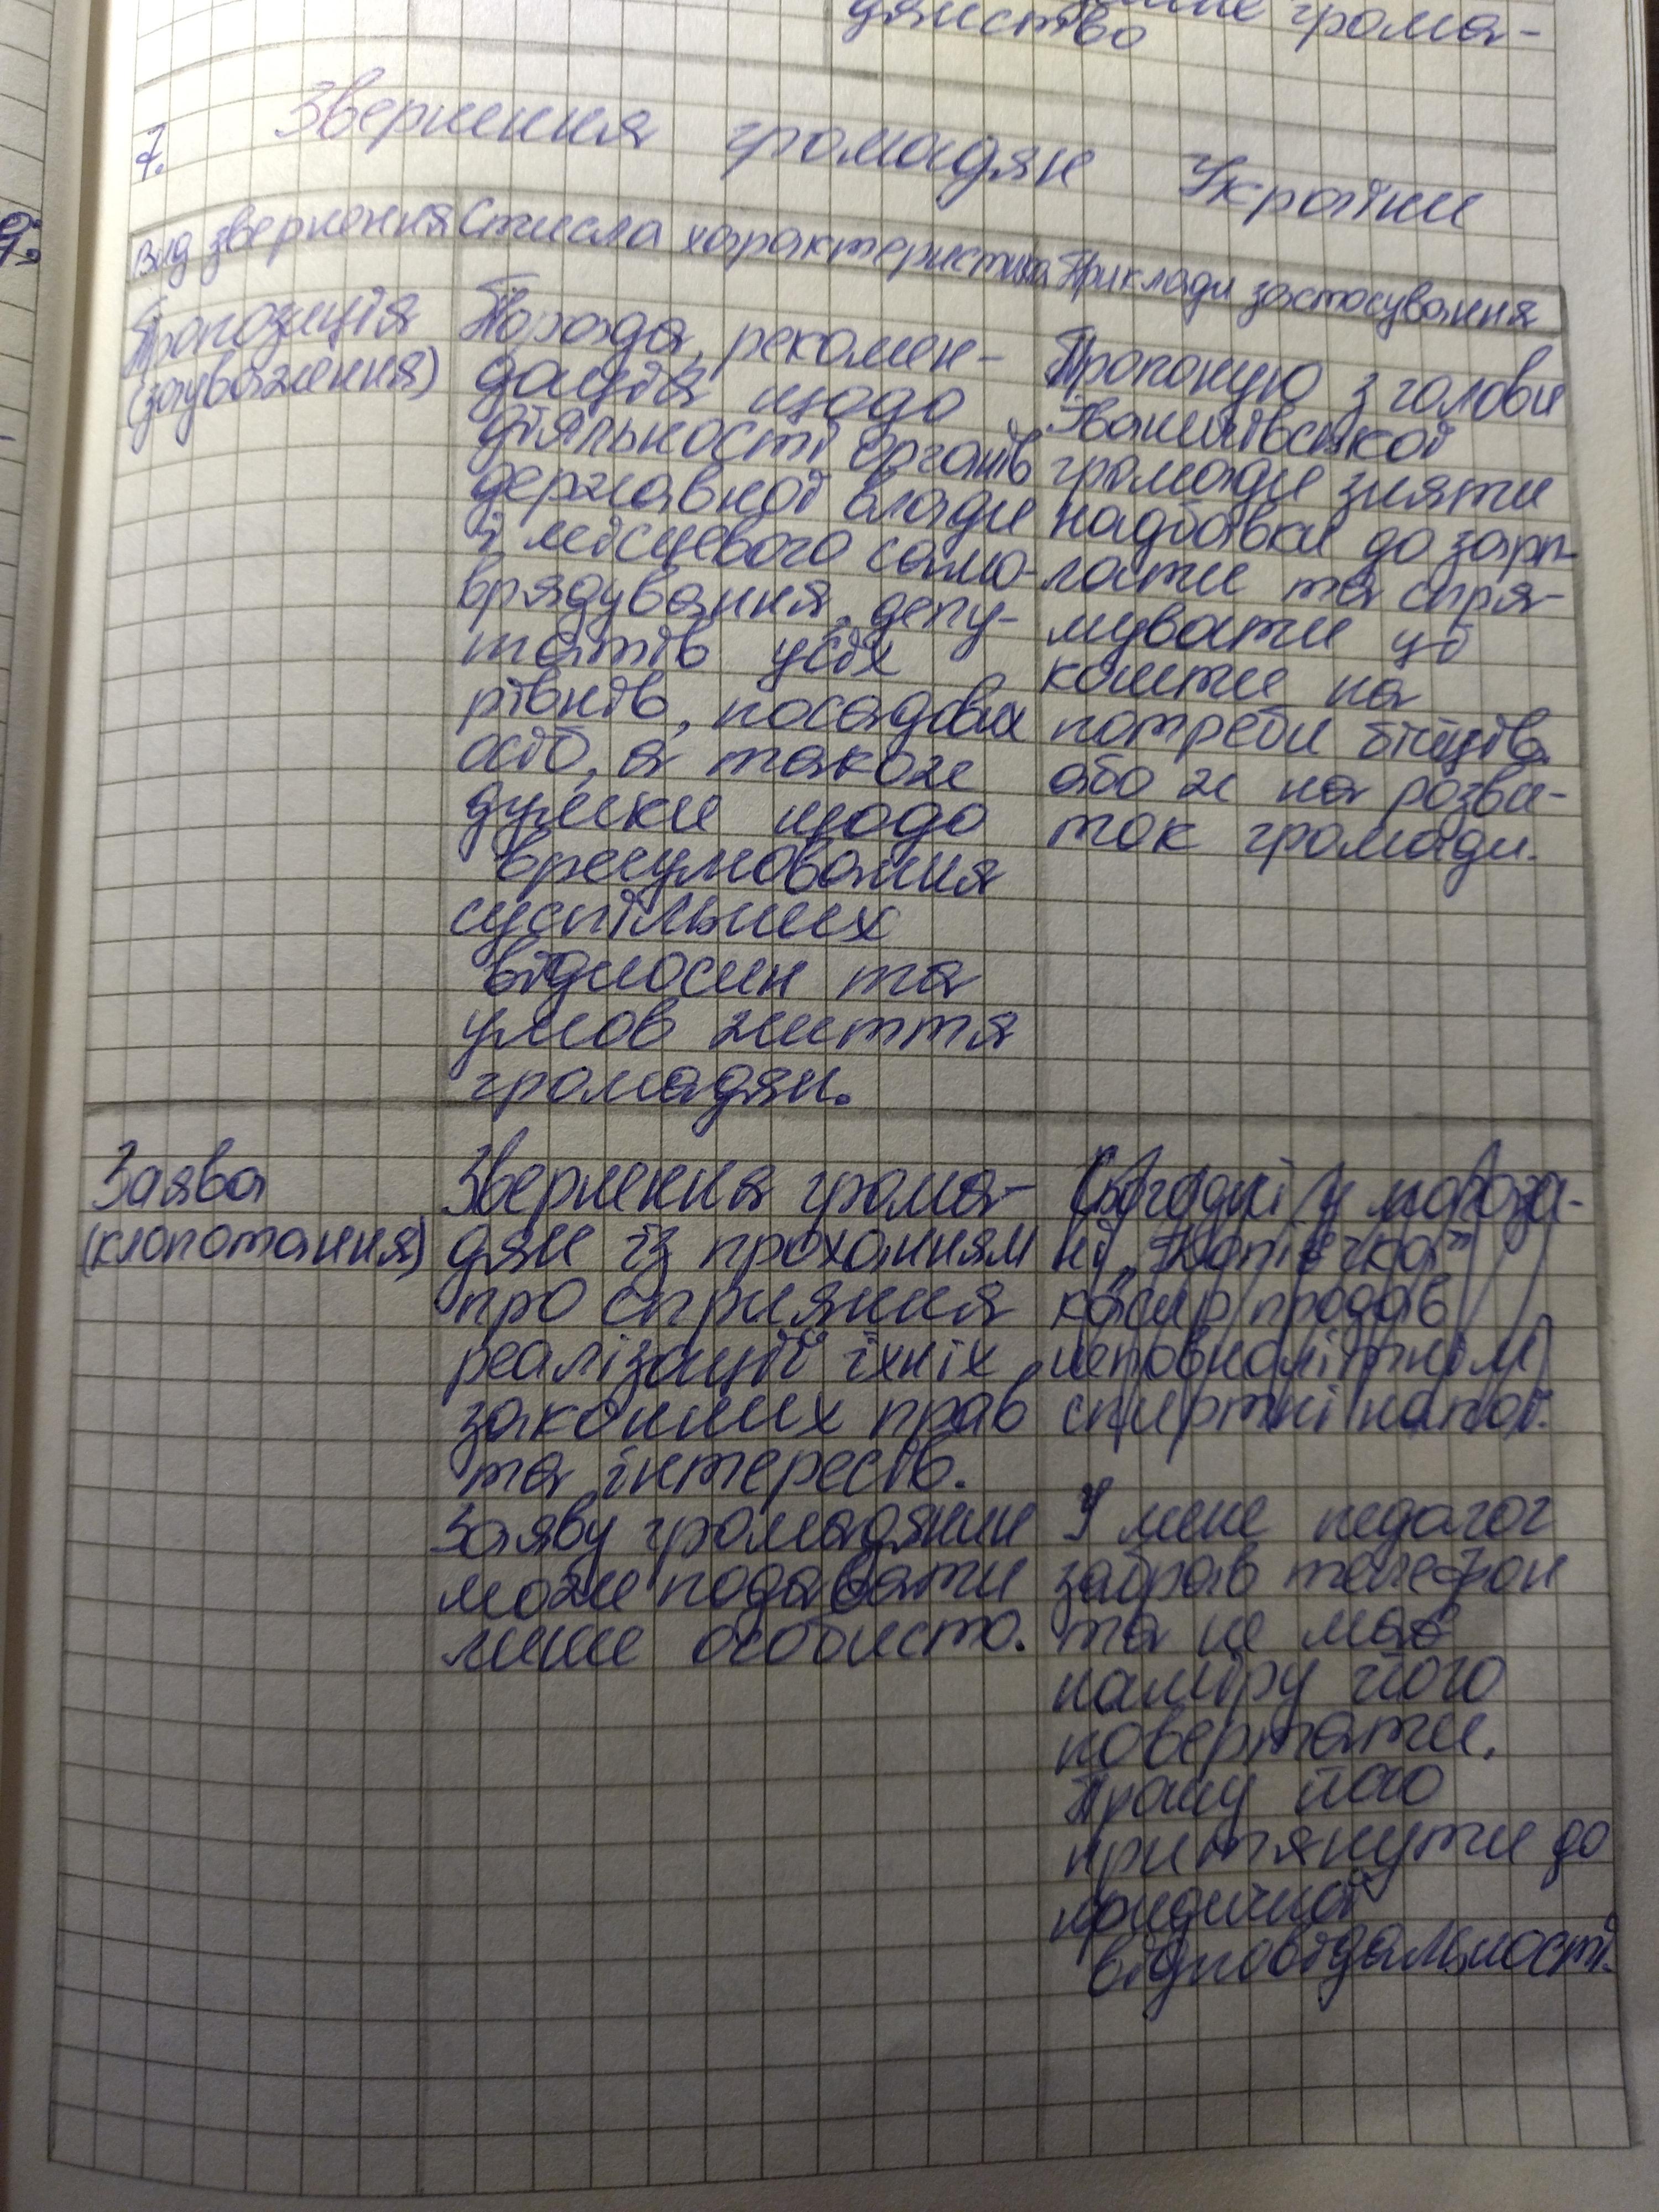 дянство
грома-
7. Звернення громадян України
Вид звернення Стисла характеристика Приклади застосування
Пропозиція
(зауваження)
Порада, рекомен-
дація щодо
діяльності органів
державної влади
і місцевого само-
врядування, депу-
татів усіх
рівнів, посадових
осіб, а також
думки щодо
врегулювання
суспільних
відносин та
умов життя
громадян.
Пропоную з голови
Іваничівської
громади зняти
надбавки до зарп-
лати та спря-
мувати ці
кошти на
потреби бійців
або ж на розви-
ток громади.
Заява
(клопотання)
Звернення грома-
дян із проханням
про сприяння
реалізації їхніх
законних прав
та інтересів.
Заяву громадянин
може подавати
лише особисто.
Сьогодні у магази-
ні „Копієчка"
касир продав
неповнолітнім
спиртні напої.
У мене педагог
забрав телефон
та не має
наміру його
повертати.
Прошу його
притянути до
юридичної
відповідальності.